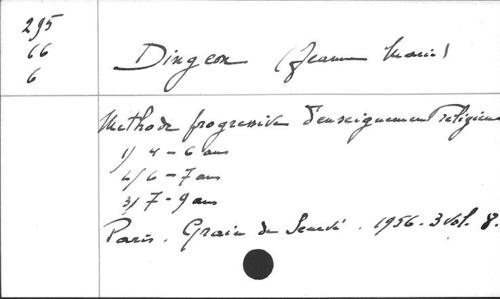 295
66
6
Dingeon (Jeanne Marie)
Méthode progressive d'enseignement religieux
1) 4 - 6 ans
2) 6 - 7 ans
3) 7 - 9 ans
Paris. Grain de Senevé. 1956. 3 vol. 8.